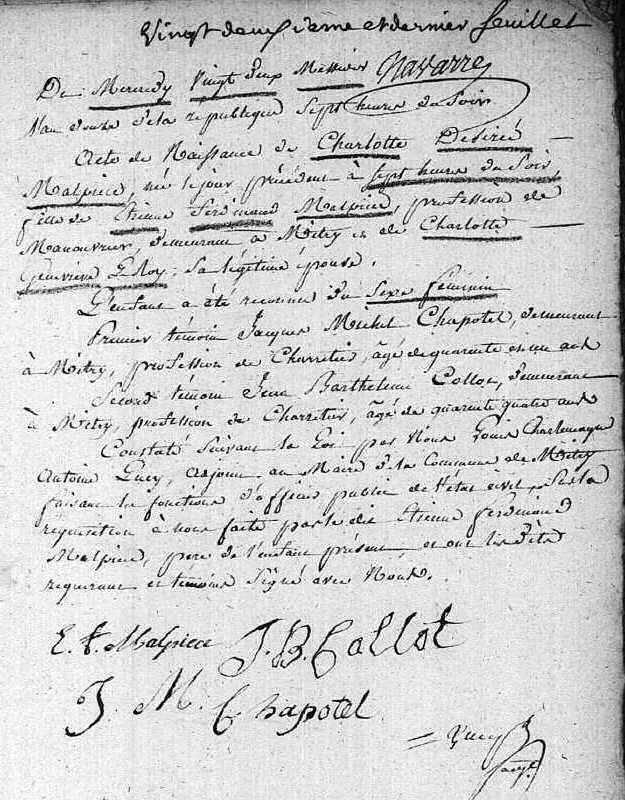 Vingt deuxieme et dernier feuillet
Navarre
Du Mercredy Vingt deux Messidor
l'an douze de la république Sept heures du Soir
Acte de Naissance de Charlotte Desirée
Malpiece, née le jour précédent à sept heures du Soir
fille de Etienne Ferdinand Malpiece, profession de
Manouvrier, demeurant à Mitry et de Charlotte
Geneviève LeRoy, sa légitime épouse.
L'enfant a été reconnu du Sexe féminin
Premier témoin Jacques Michel Chapotel, demeurant
à Mitry, profession de Charretier, âgé de quarante et un ans
Second témoin Jean Barthelemi Collot, demeurant
à Mitry, profession de Charretier, âgé de quarante quatre ans
Constaté Suivant la Loi par Nous Louis Charlemagne
Antoine Lucy, adjoint au Maire de la Commune de Mitry
faisant les fonctions d'officier public de l'état civil, Sur la
requisition à nous faite par le dit Etienne Ferdinand
Malpiece, pere de l'enfant présent, et ont les dits
requerant et témoins Signé avec Nous.
E. F. Malpiece J. B. Collot
J. M. Chapotel
Lucy